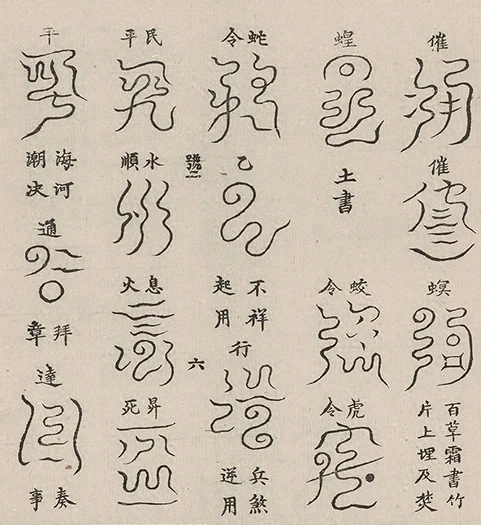 催
催
螟
百草霜書竹
片上埋及焚
蝗
土書
蛟令
虎令
蛇令
乙
不祥
起用
行
兵煞
逆用
六
民平
水順
息火
昇死
平
海河
潮决
通
拜章
達
奏事